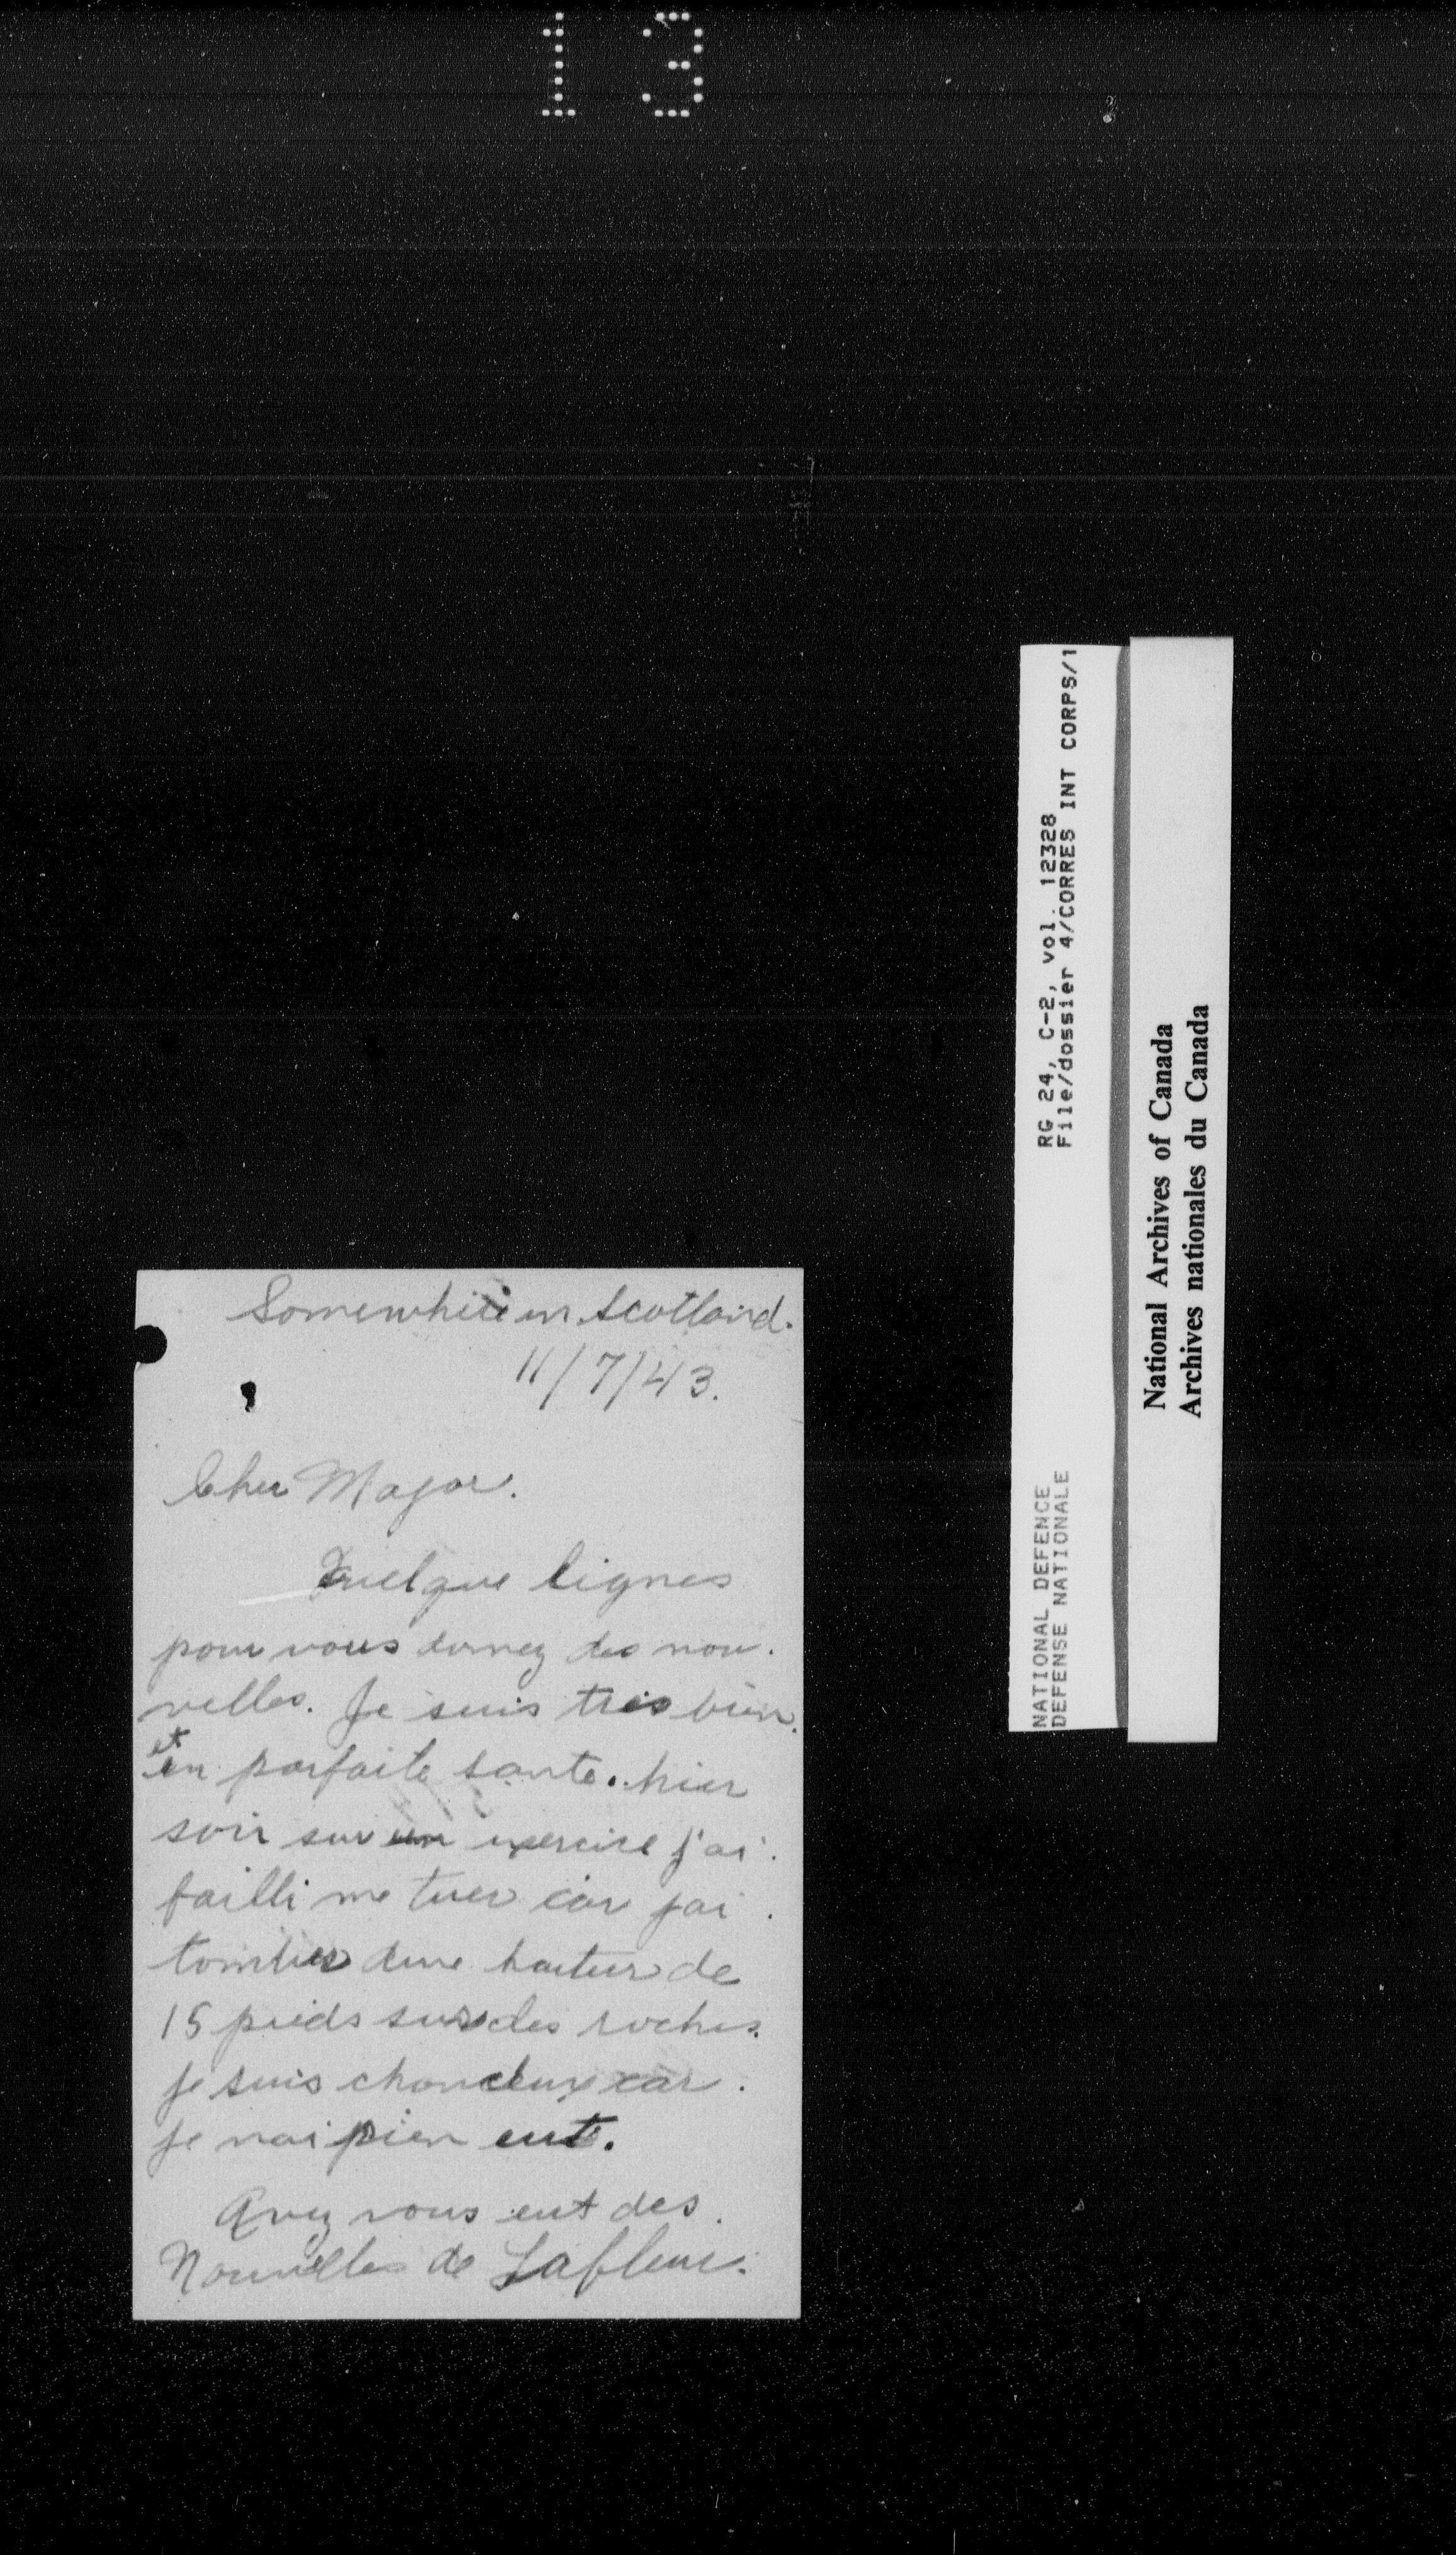 13
Somewhere in Scotland.
11/7/43.
Cher Major.
Quelque lignes
pour vous donnez des nou-
velles. Je suis très bien
et
en parfaite sante. hier
soir sur un exercise j'ai
failli me tuer car jai
tomber dune hauteur de
15 pieds sur des roches.
Je suis chanceux car
je nai rien eut.
Avez vous eut des
Nouvelles de Lafleur.
RG 24, C-2, vol. 12328
File/dossier 4/CORRES INT CORPS/1
NATIONAL DEFENCE
DEFENSE NATIONALE
National Archives of Canada
Archives nationales du Canada